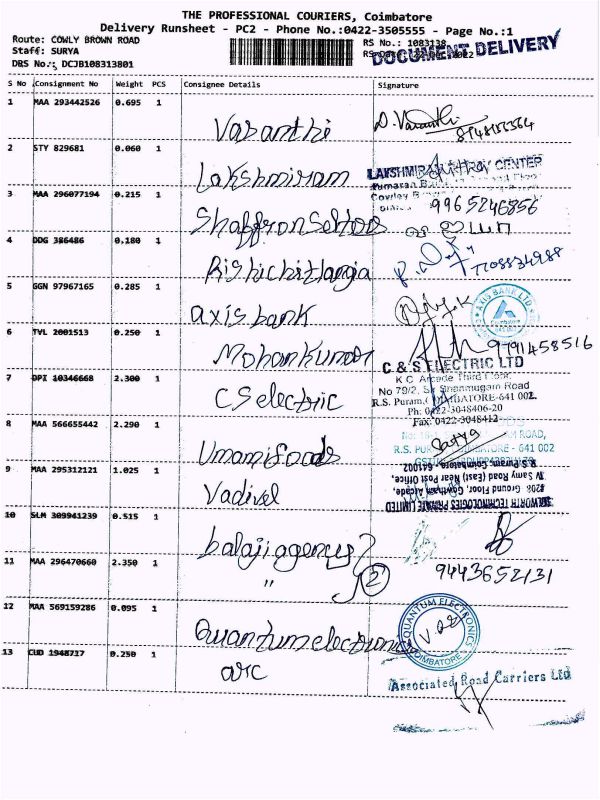 THE PROFESSIONAL COURIERS, Coimbatore
Delivery Runsheet - PC2 - Phone No.:0422-3505555 - Page No.:1
Route: COWLY BROWN ROAD
RS No.: 1083138
DOCUMENT DELIVERY
Staff: SURYA
DRS No.: DCJB108313801
S No Consignment No Weight PCS Consignee Details Signature
1 MAA 293442526 0.695 1 Vasanthi D. Vasanthi
2 STY 829681 0.060 1 Lakshmiram
LAKSHMIRAM CENTER
3 MAA 296077194 0.215 1 Shaffronsektos 9965246856
4 DDG 386486 0.180 1 Rishichitlangia 7708834988
5 GGN 97967165 0.285 1 axis bank
AXIS BANK LTD
6 TVL 2001513 0.250 1 Mohankumar 9791458516
7 DPI 10346668 2.300 1 CS electric
C & S ELECTRIC LTD
K C Arcade Third Floor,
No 79/2, Sir Shanmugam Road
R.S. Puram, COIMBATORE-641 002.
Ph: 0422-3048406-20
Fax: 0422-3048412
8 MAA 566655442 2.290 1 Umamifoods Satya
ROAD,
R.S. PURAM, COIMBATORE - 641 002
9 MAA 295312121 1.025 1 Vadivel
WORTH TECHNOLOGIES PRIVATE LIMITED
#208, Ground Floor, Gowtham Arcade,
TV Samy Road (East) Near Post Office,
R.S Puram, Coimbatore - 641002
10 SLM 309941239 0.515 1 balaji agency
11 MAA 296470660 2.350 1 " 2 9443652131
12 MAA 569159286 0.095 1 Quantum electronics
QUANTUM ELECTRONICS
COIMBATORE
13 CUD 1948717 0.250 1 arc
Associated Road Carriers Ltd